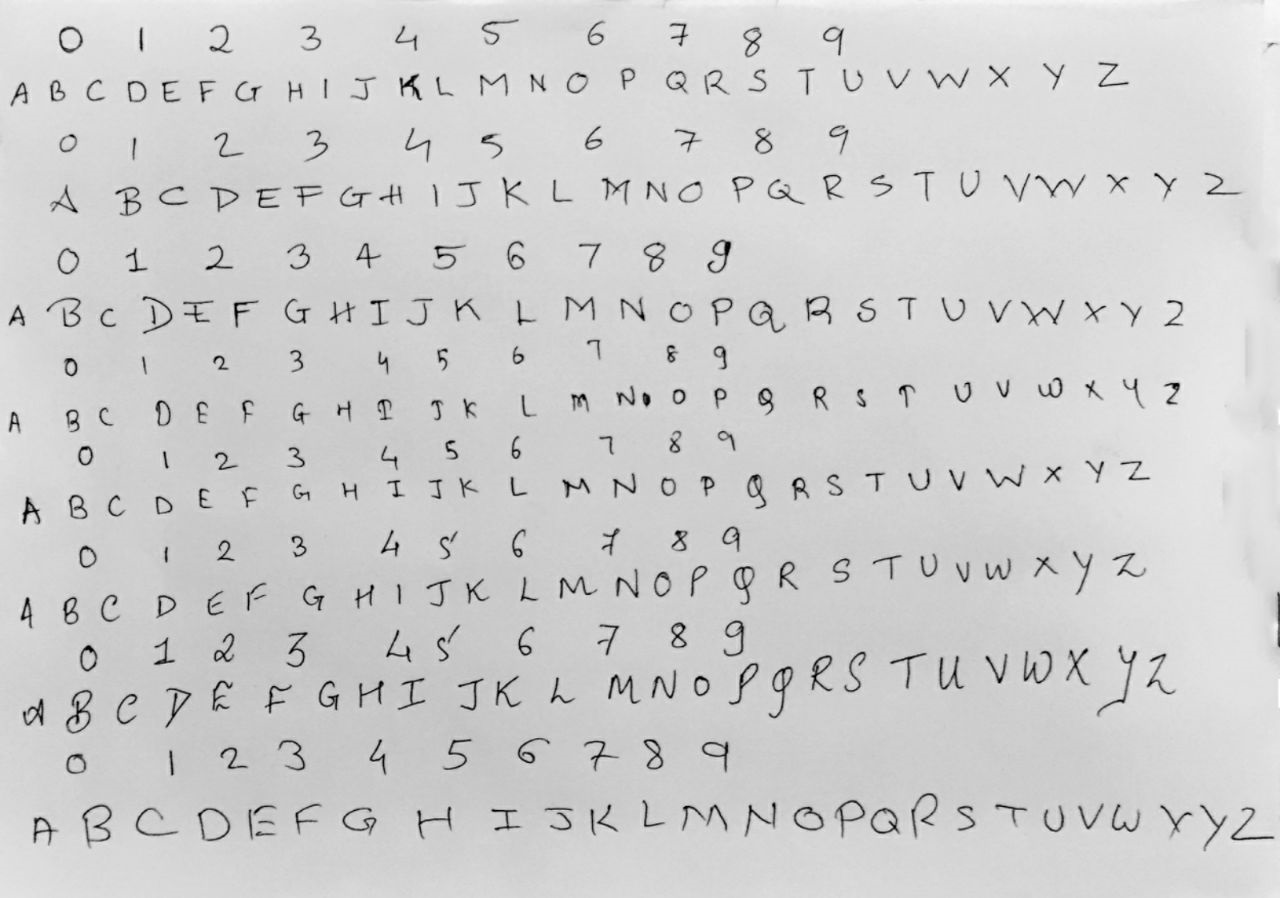 0 1 2 3 4 5 6 7 8 9
A B C D E F G H I J K L M N O P Q R S T U V W X Y Z
0 1 2 3 4 5 6 7 8 9
A B C D E F G H I J K L M N O P Q R S T U V W X Y Z
0 1 2 3 4 5 6 7 8 9
A B C D E F G H I J K L M N O P Q R S T U V W X Y Z
0 1 2 3 4 5 6 7 8 9
A B C D E F G H I J K L M N O P Q R S T U V W X Y Z
0 1 2 3 4 5 6 7 8 9
A B C D E F G H I J K L M N O P Q R S T U V W X Y Z
0 1 2 3 4 5 6 7 8 9
A B C D E F G H I J K L M N O P Q R S T U V W X Y Z
0 1 2 3 4 5 6 7 8 9
A B C D E F G H I J K L M N O P Q R S T U V W X Y Z
0 1 2 3 4 5 6 7 8 9
A B C D E F G H I J K L M N O P Q R S T U V W X Y Z